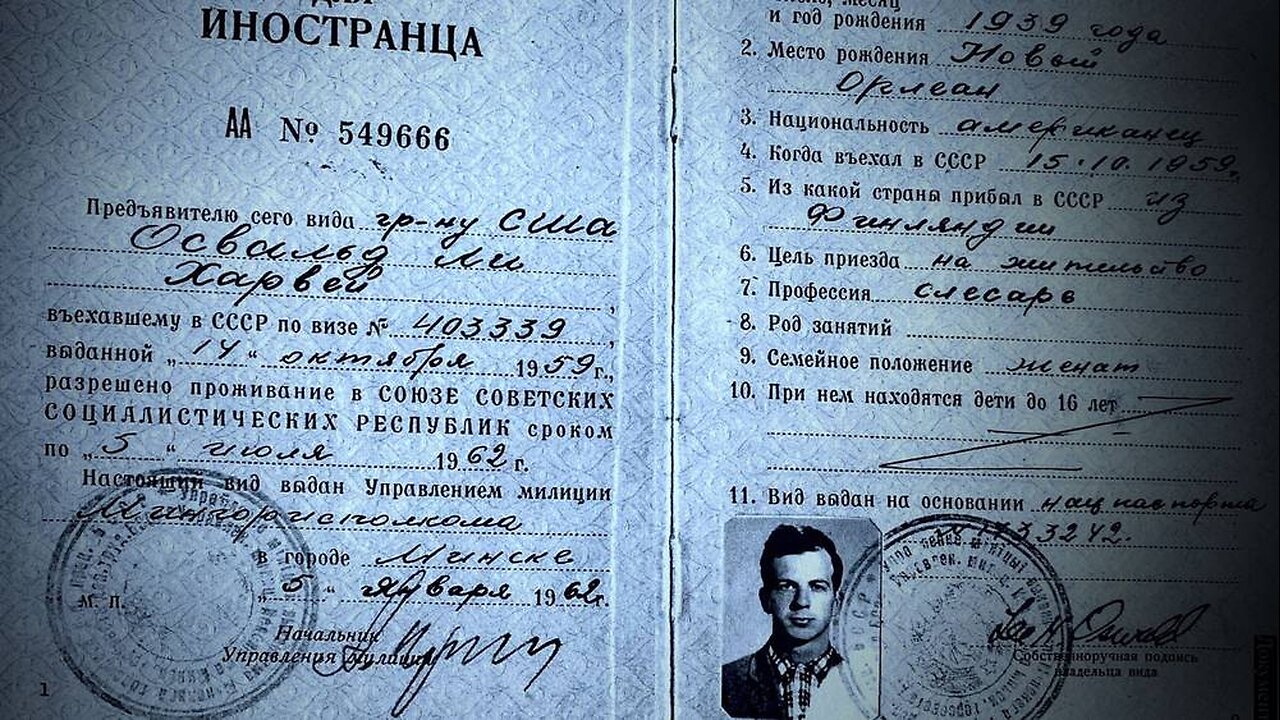 ИНОСТРАНЦА
АА № 549666
Предъявителю сего вида гр-ну США
Освальд Ли
Харвей
въехавшему в СССР по визе № 403339
выданной „14“ октября 1959 г.,
разрешено проживание в СОЮЗЕ СОВЕТСКИХ
СОЦИАЛИСТИЧЕСКИХ РЕСПУБЛИК сроком
по „5“ июля 1962 г.
Настоящий вид выдан Управлением милиции
Мингорисполкома
в городе Минске
„5“ января 1962 г.
М. П.
Начальник
Управления милиции
1
и год рождения 1939 года
2. Место рождения Новый
Орлеан
3. Национальность американец
4. Когда въехал в СССР 15.10.1959.
5. Из какой страны прибыл в СССР из
Финляндии
6. Цель приезда на жительство
7. Профессия слесарь
8. Род занятий
9. Семейное положение женат
10. При нем находятся дети до 16 лет
11. Вид выдан на основании нац паспорта
33242.
Собственноручная подпись
владельца вида